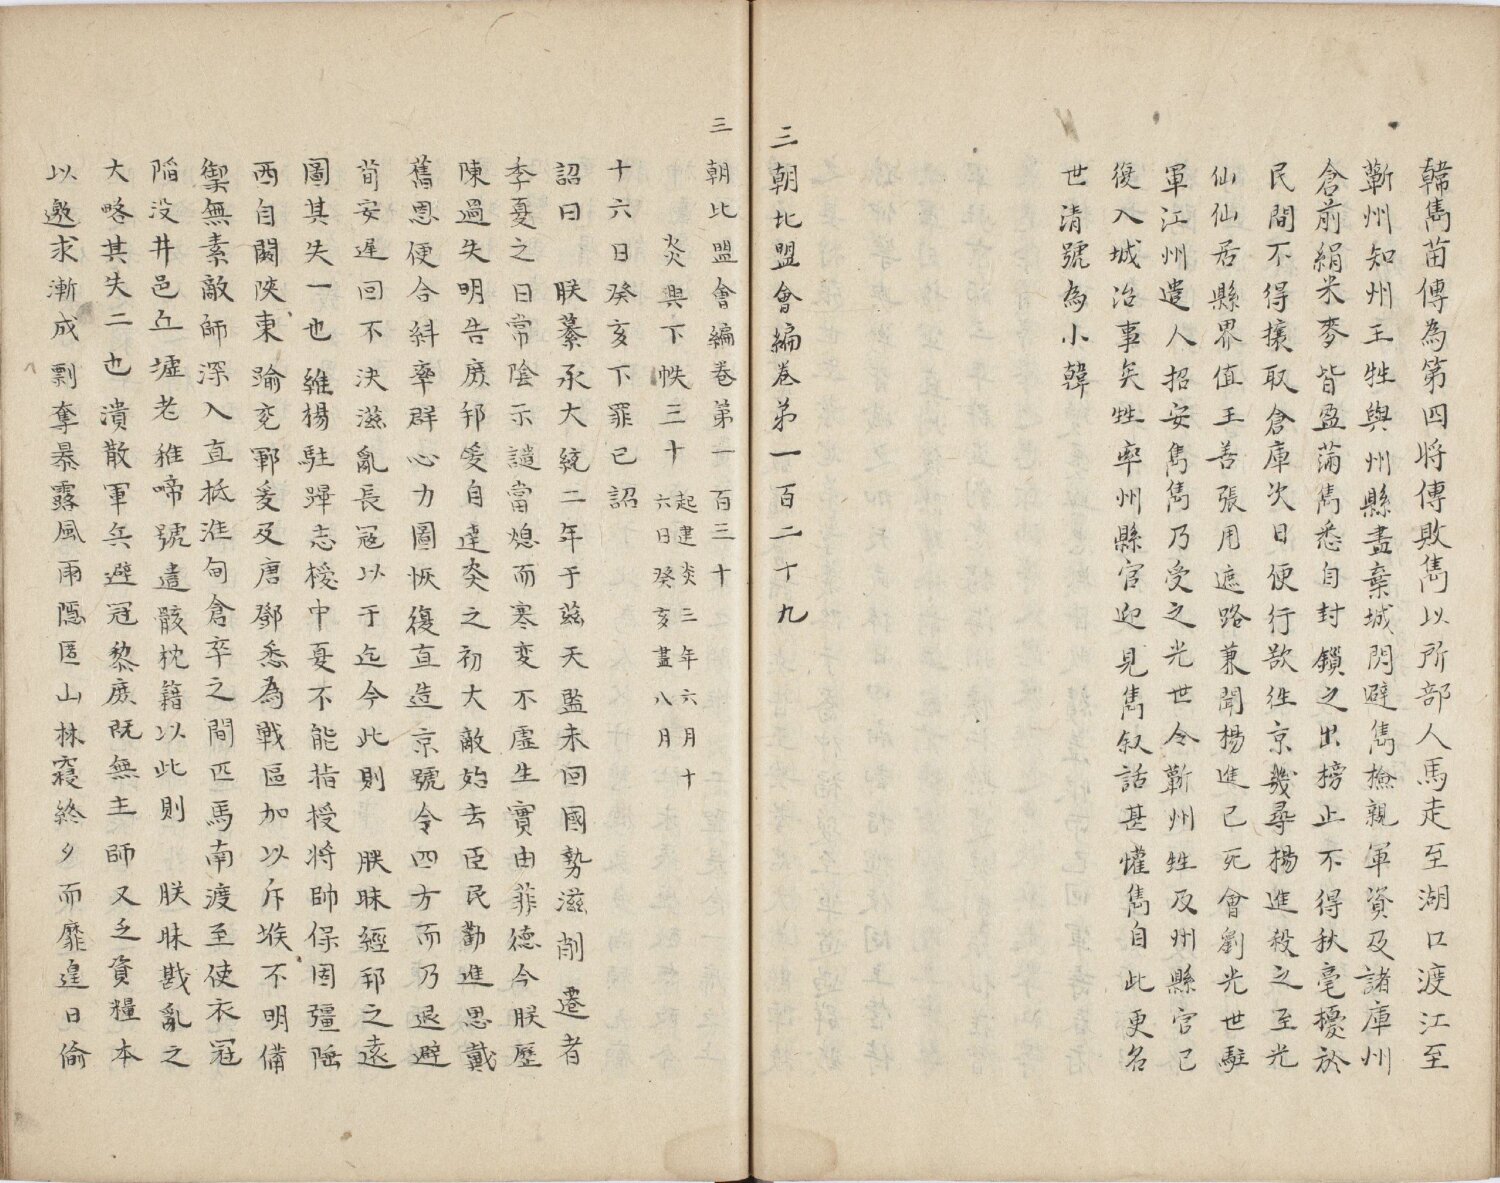 韓雋苗傅為第四將傅敗雋以所部人馬走至湖口渡江至
蘄州知州王甡與州縣盡棄城閉避雋撿親軍資及諸庫州
倉前絹米麥皆盈蒲雋悉自封鎖之出榜止不得秋毫擾於
民間不得攘取倉庫次日便行欲徃京畿尋楊進殺之至光
仙仙居縣界值王善張用遮路兼聞楊進已死會劉光世駐
軍江州遣人招安雋雋乃受之光世令蘄州甡及州縣官已
復入城冶事矣甡率州縣官迎見雋叙話甚懽雋自此更名
世清號為小韓
三朝北盟會編卷第一百二十九
三朝北盟會編卷第一百三十
炎興下帙三十 起建炎三年六月十六日癸亥盡八月
十六日癸亥下罪已詔
詔曰 朕纂承大統二年于茲天監未回國勢滋削 遷者
季夏之日常陰示譴當熄而寒變不虛生實由菲德今朕歷
陳過失明告庻邦爰自建炎之初大敵始去臣民勸進思戴
舊恩便合糾率群心力圖恢復直造京號令四方而乃退避
荀安遲回不決滋亂長冦以于迄今此則 朕昧經邦之遠
圖其失一也維楊駐蹕志櫌中憂不能指授将帥保固疆陲
西自関陜東踰兖鄆爰及唐鄧悉為戰區加以斥堠不明備
禦無素敵師深入直抵淮甸倉卒之間匹馬南渡至使衣冠
陷没井邑丘墟老稚啼號遺骸枕籍以此則 朕昧戡亂之
大略其失二也潰散軍兵避冦黎庻既無主師又乏資糧本
以邀求漸成剽奪暴露風雨隠匿山林寢終夕而靡遑日偷